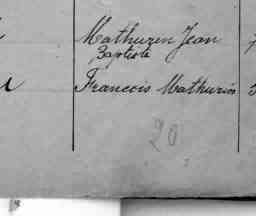 Mathuren Jean
Baptiste
Francois Mathurin
20